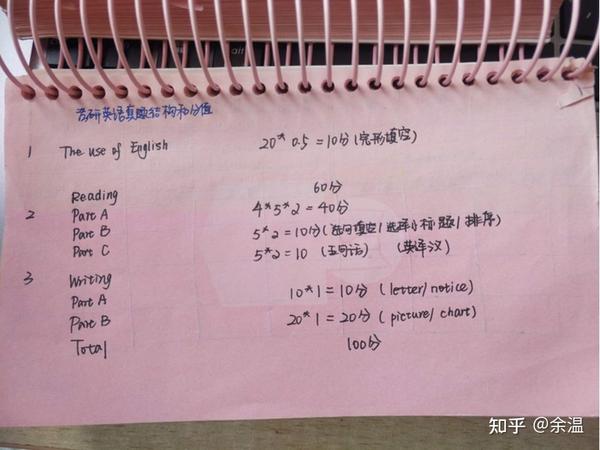 考研英语真题结构和分值
1 The use of English 20*0.5=10分(完形填空)
Reading 60分
2 Part A 4*5*2=40分
Part B 5*2=10分(选句填空/选择小标题/排序)
Part C 5*2=10 (五句话) (英译汉)
3 Writing
Part A 10*1=10分 (letter/notice)
Part B 20*1=20分 (picture/chart)
Total 100分
知乎 @余温